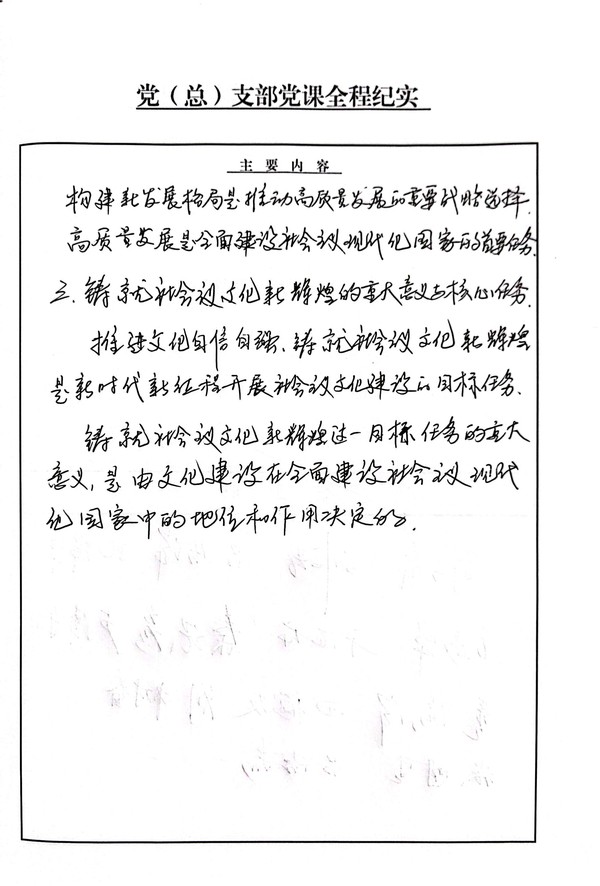 党（总）支部党课全程纪实
主要内容
构建新发展格局是推动高质量发展的重要战略选择.
高质量发展是全面建设社会议现代化国家的首要任务.
三. 铸就社会议文化新辉煌的重大意义与核心任务.
推进文化自信自强、铸就社会议文化新辉煌
是新时代新征程开展社会议文化建设的目标任务.
铸就社会议文化新辉煌这一目标任务的重大
意义, 是由文化建设在全面建设社会议现代
化国家中的地位和作用决定的.